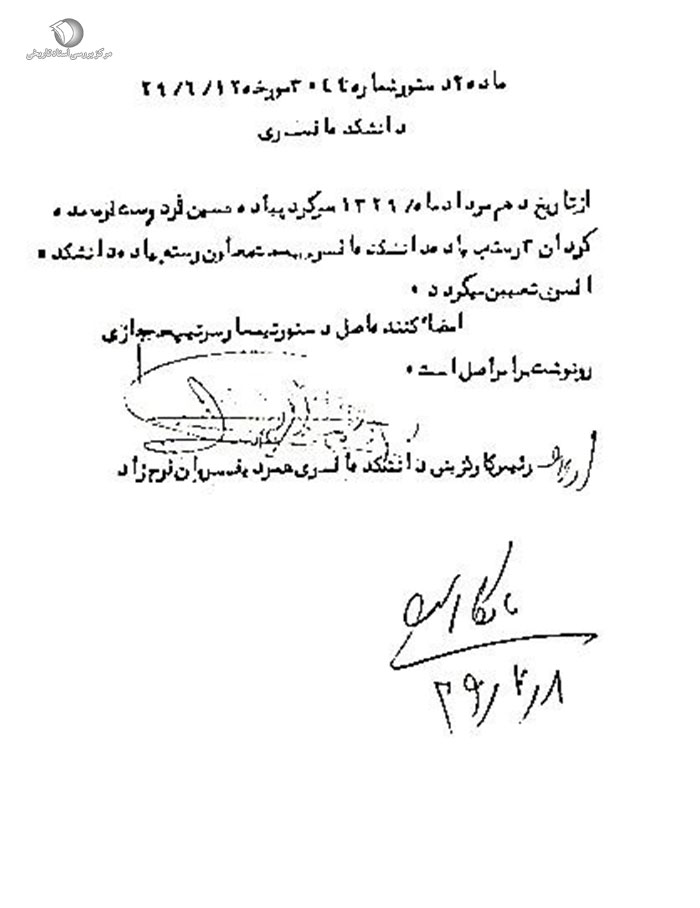 مرکز بررسی اسناد تاریخی
ماده ۲ دستور شماره ۳۰۴۴ مورخه ۲۹/۶/۱۲
دانشکده افسری
از تاریخ دهم مرداد ماه ۱۳۲۹ سرگرد پیاده حسین فردوست فرمانده
گردان ۳ رسته پیاده دانشکده افسری بسمت معاون رسته پیاده دانشکده
افسری تعیین میگردد
امضاء کننده اصل دستور تیمسار سرتیپ حجازی
رونوشت برابر اصل است
رئیس کارگزینی دانشکده افسری همردیف سروان فرح زاد
بایگانی است